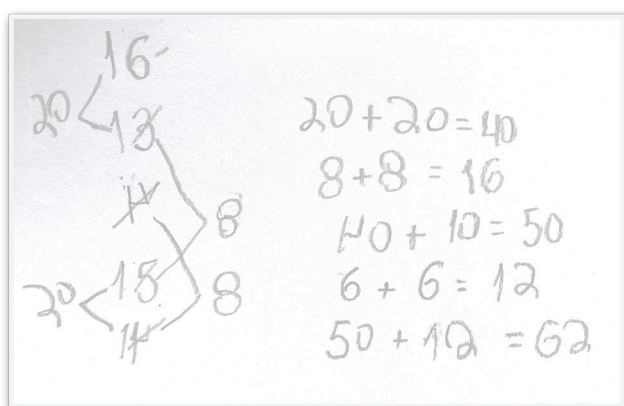 16
20
13
4
8
15
20
8
4
20 + 20 = 40
8 + 8 = 16
40 + 10 = 50
6 + 6 = 12
50 + 12 = 62